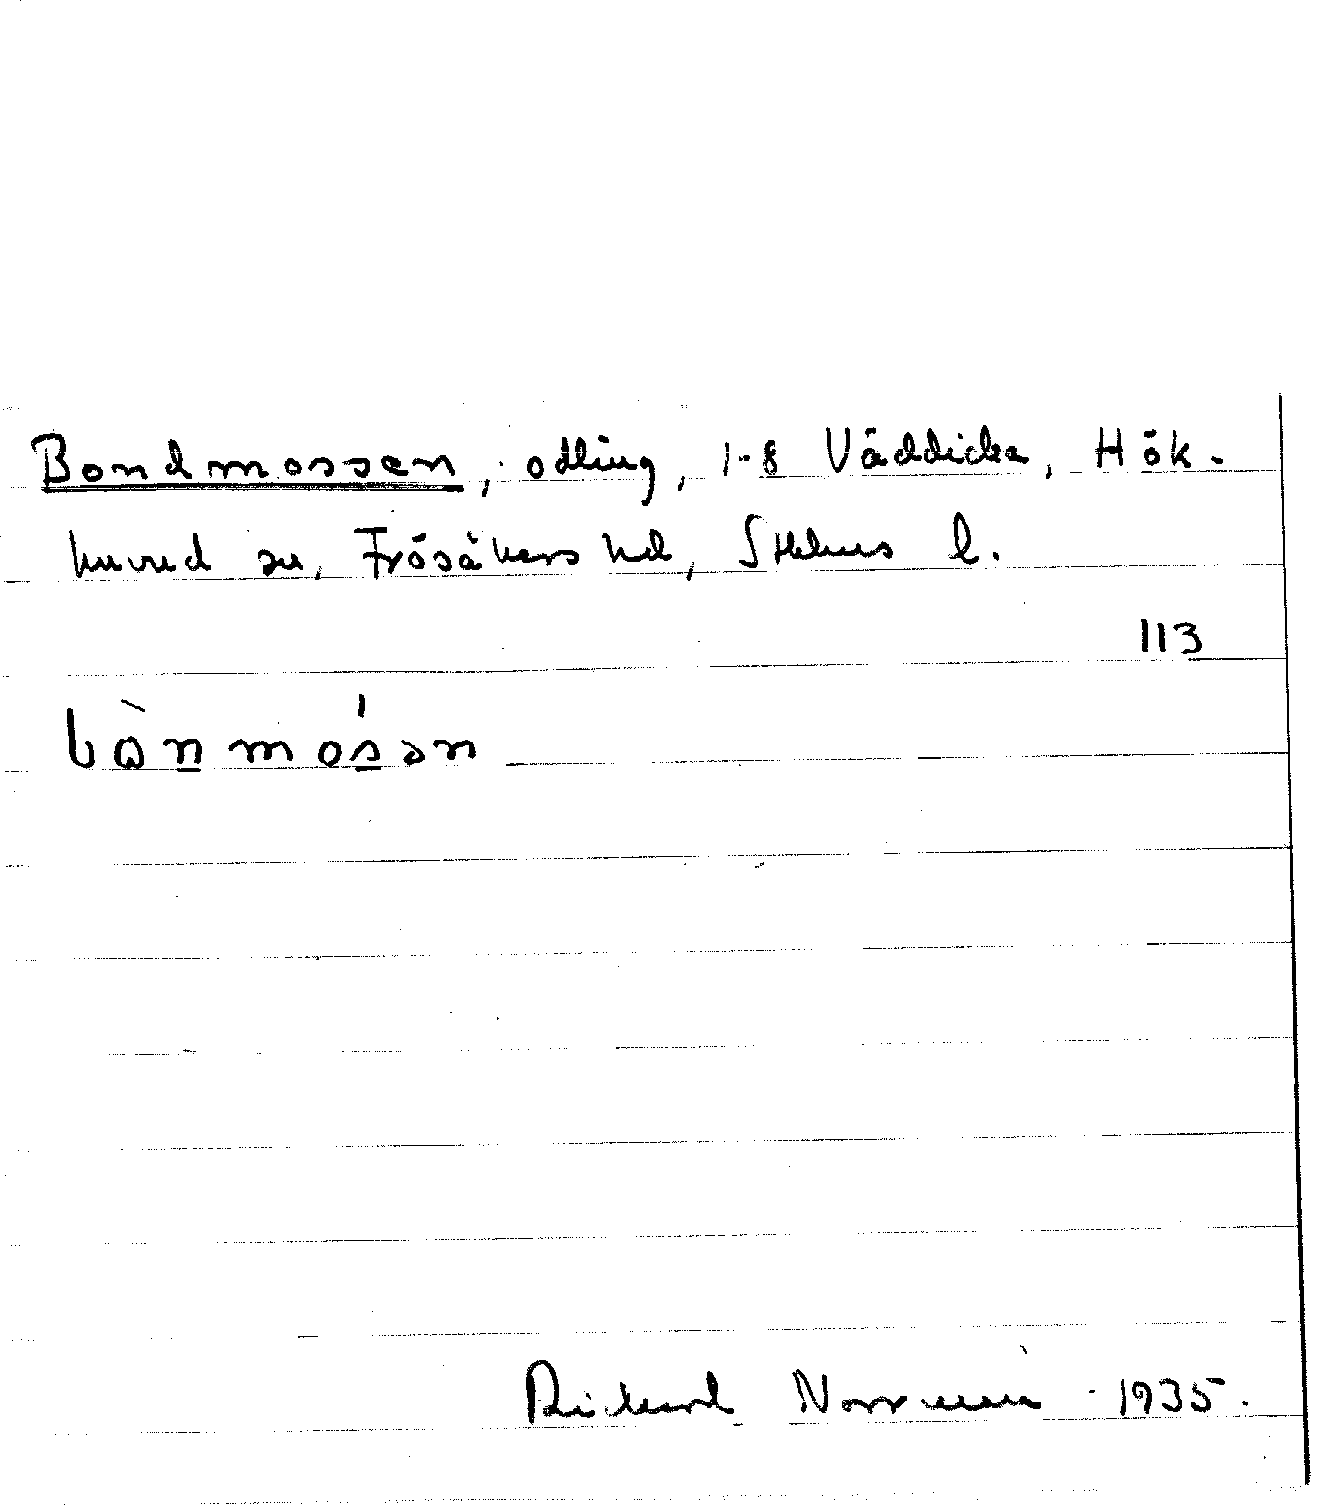 Bondmossen, odling, 1-8 Väddicka, Hök-
huvud sn, Frösåkers hd, Sthlms l.
113
bònmósan
Rickard Norr 1935.